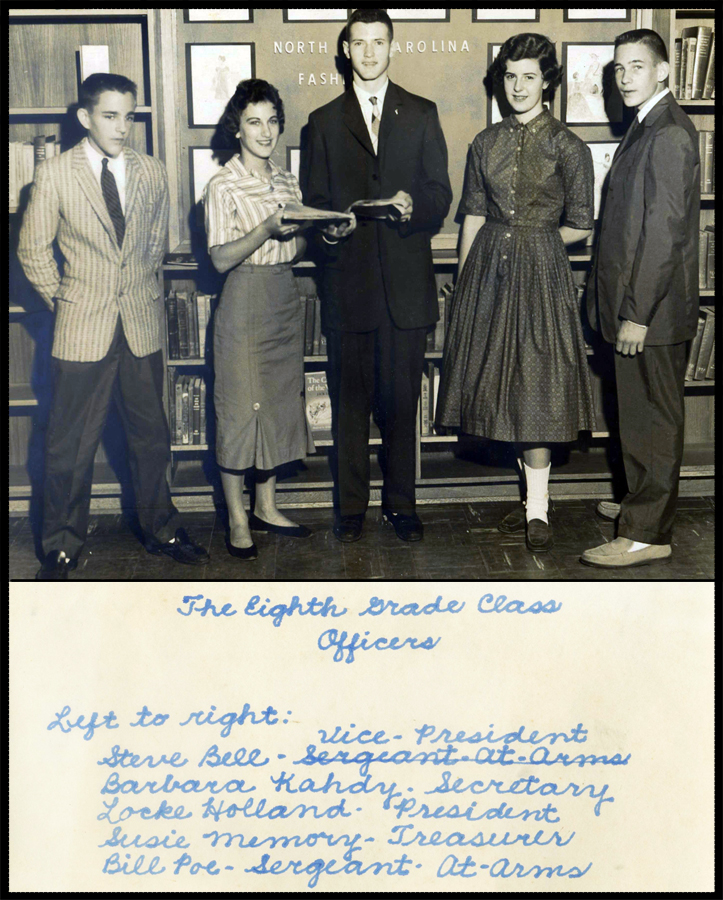 NORTH CAROLINA
FASH
The C
of the
The Eighth Grade Class
Officers
Left to right:
Vice-President
Steve Bell - Sergeant-At-Arms
Barbara Kahdy. Secretary
Locke Holland- President
Susie Memory- Treasurer
Bill Poe- Sergeant- At-Arms